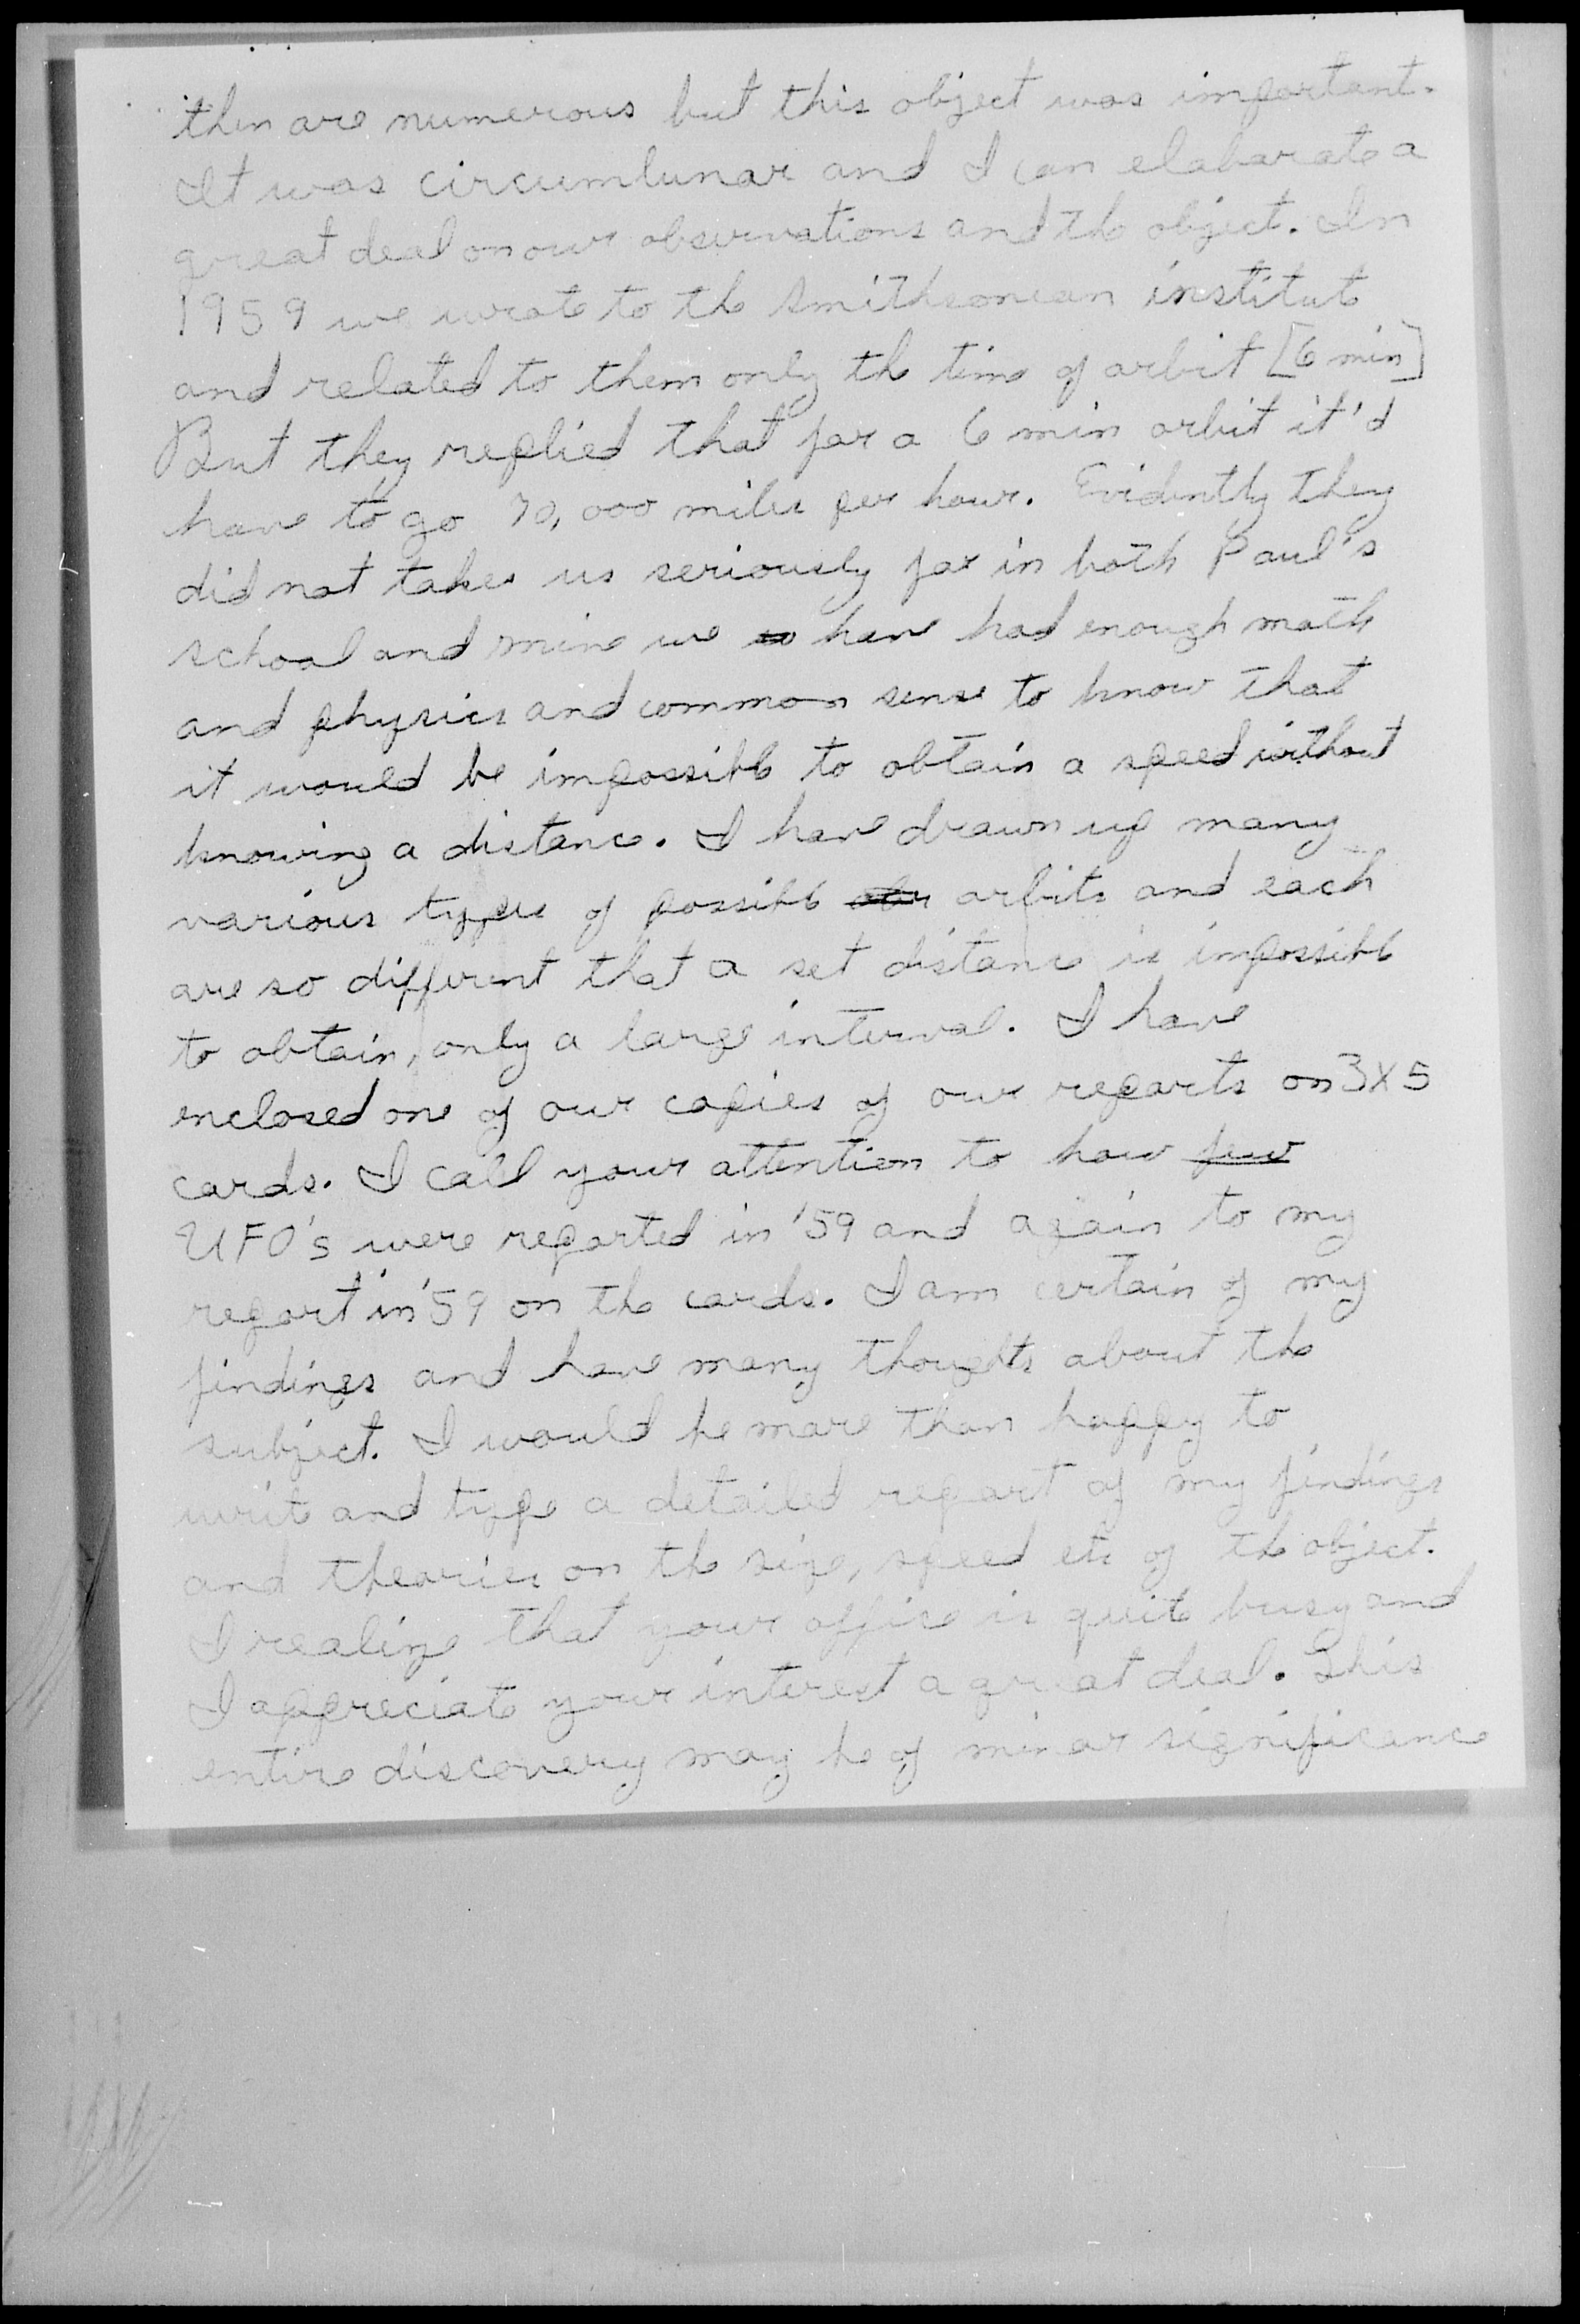 then are numerous but this object was important.
It was circumlunar and I can elaborate a
great deal on our observations and the object. In
1959 we wrote to the Smithsonean institute
and related to them only the time of orbit [6 min]
But they replied that for a 6 min orbit it'd
have to go 70,000 miles per hour. Evidently they
did not take us seriously for in both Paul's
school and mine we have had enough math
and physics and common sense to know that
it would be impossible to obtain a speed without
knowing a distance. I have drawn up many
various types of possible orbits and each
are so different that a set distance is impossible
to obtain, only a large interval. I have
enclosed one of our copies of our reports on 3X5
cards. I call your attention to how few
UFO's were reported in '59 and again to my
report in '59 on the cards. I am certain of my
findings and have many thoughts about the
subject. I would be more than happy to
write and type a detailed report of my findings
and theories on the size, speed etc of the object.
I realize that your office is quite busy and
I appreciate your interest a great deal. This
entire discovery may be of minor significance